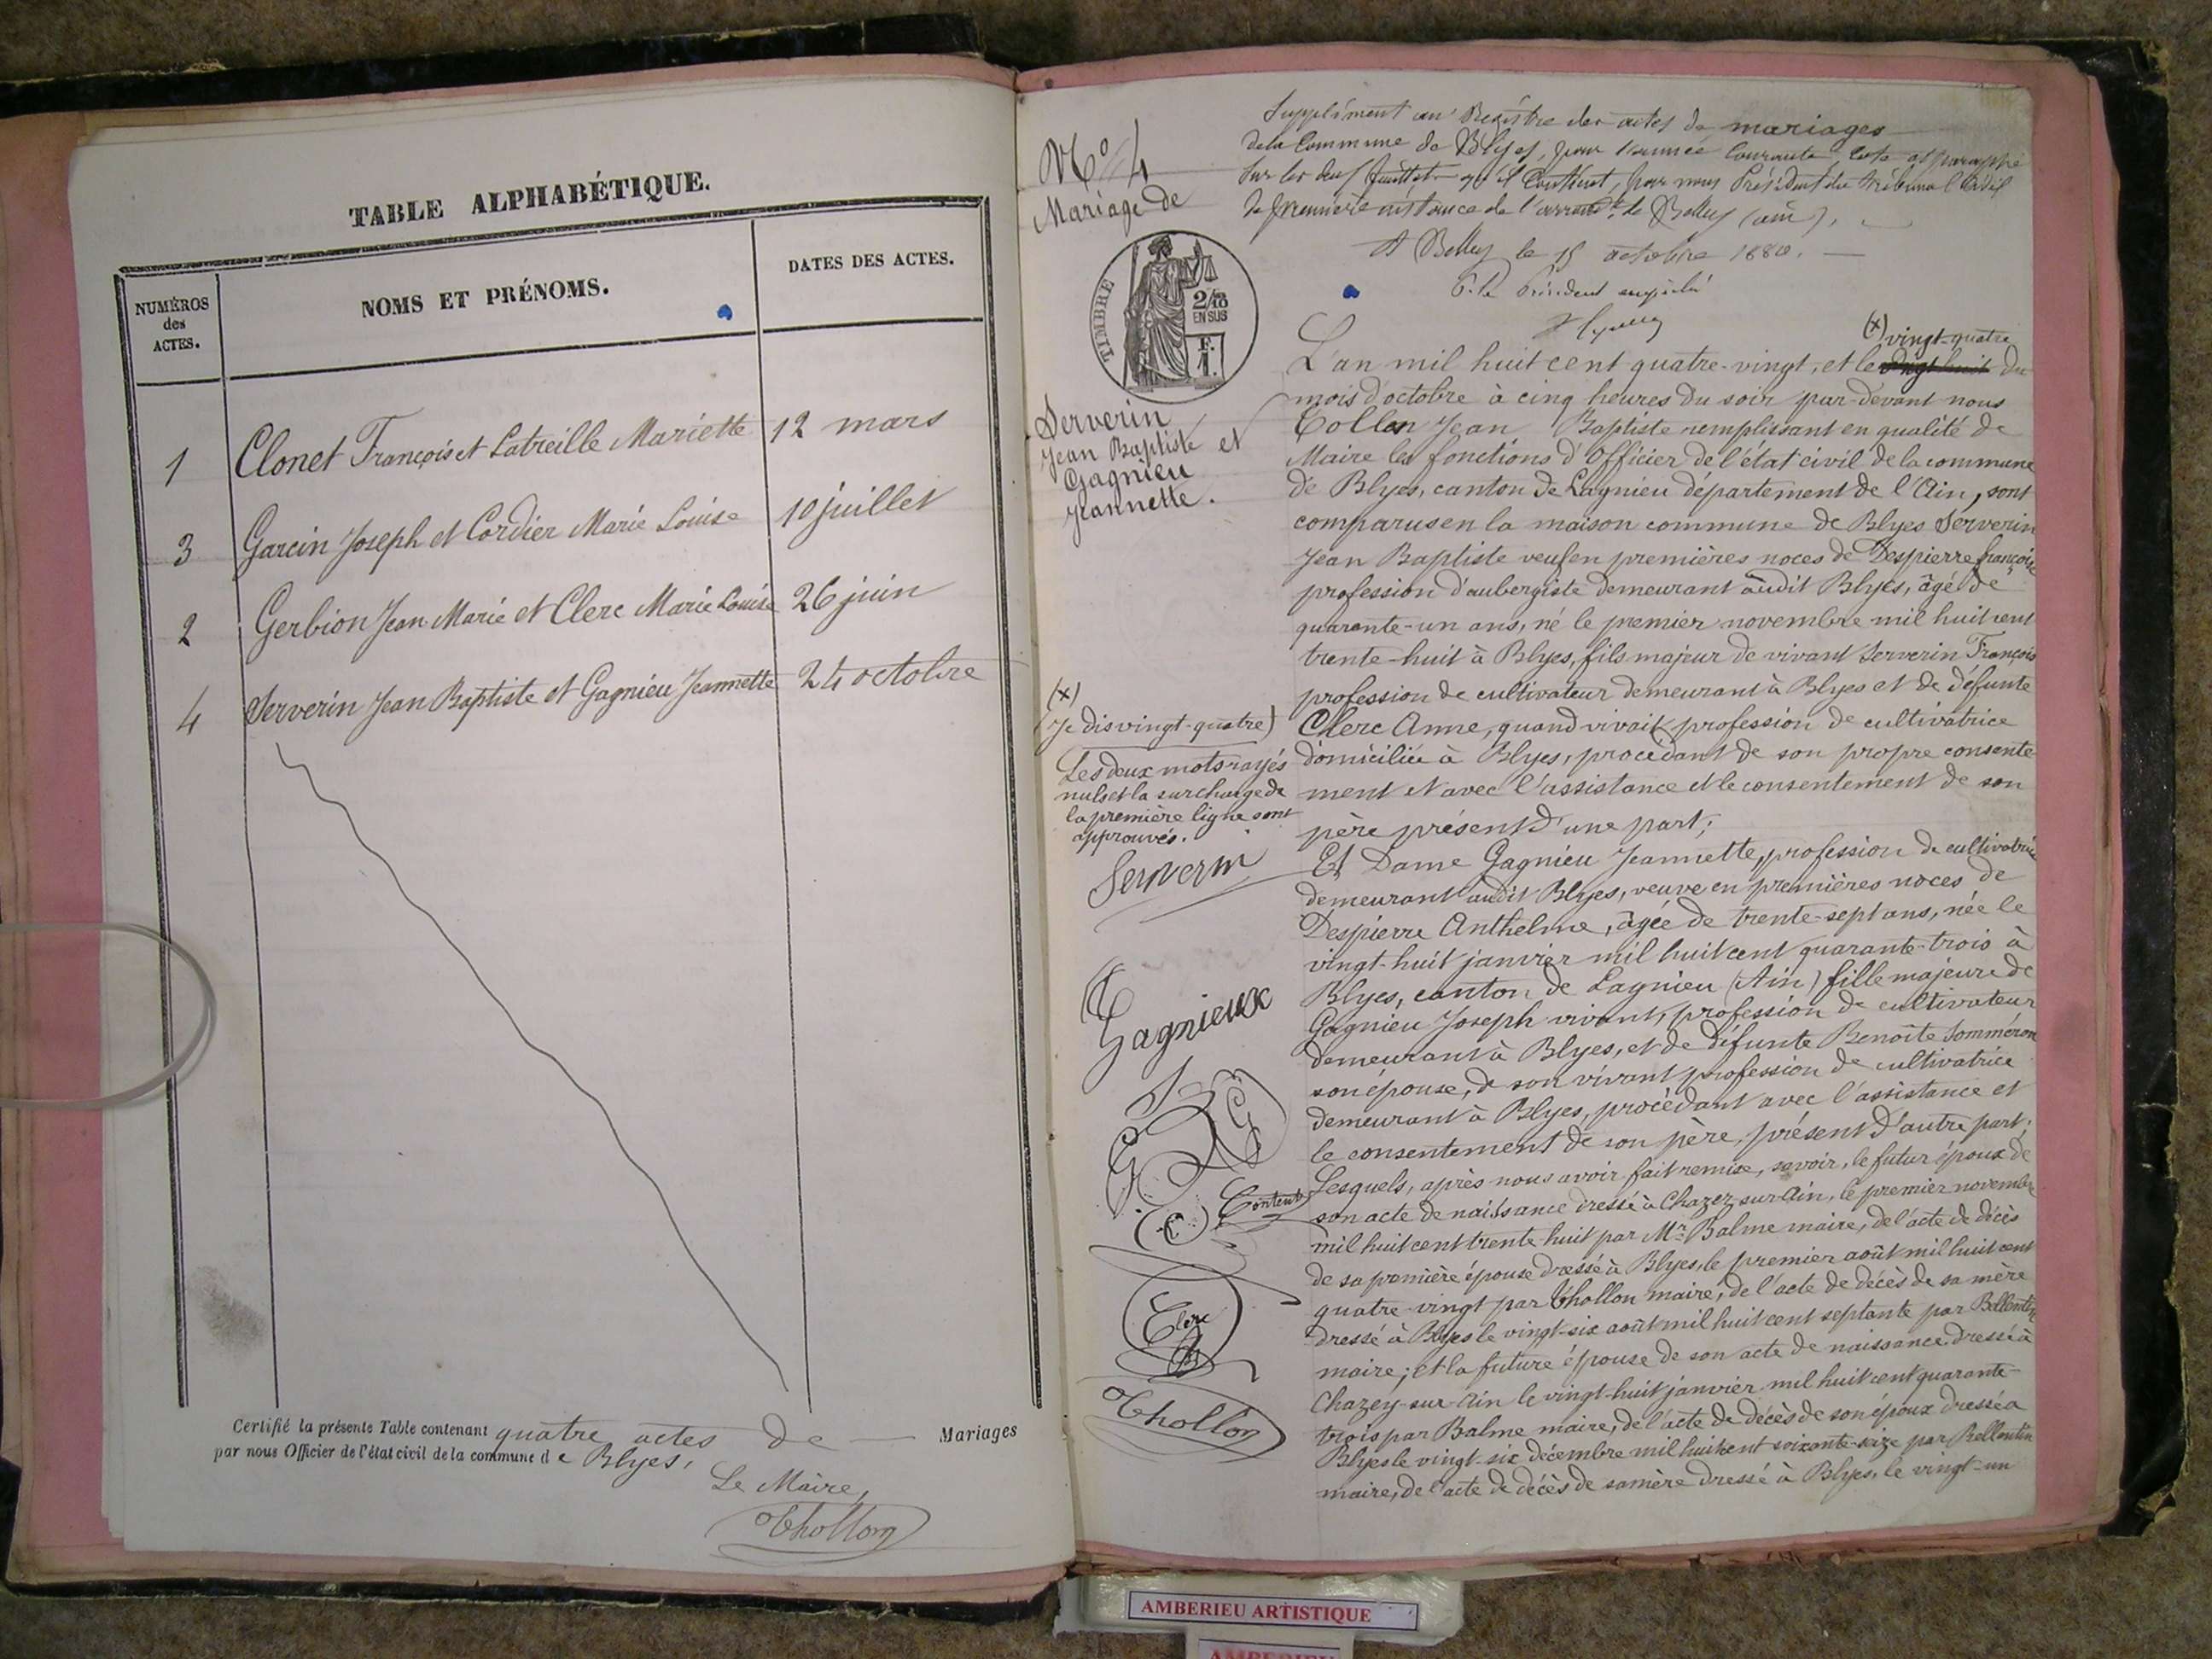 TABLE ALPHABÉTIQUE.
NUMÉROS des ACTES.
NOMS ET PRÉNOMS.
DATES DES ACTES.
1 Clonet François et Latreille Mariette 12 mars
3 Garcin Joseph et Cordier Marie Louise 10 juillet
2 Gerbion Jean Marie et Clerc Marie Louise 26 juin
4 Serverin Jean Baptiste et Gagnieu Jeannette 24 octobre
Certifié la présente Table contenant quatre actes de Mariages
par nous Officier de l'état civil de la commune de Blyes,
Le Maire,
Thollon
Supplément au Registre des actes de mariages
de la Commune de Blyes, pour l'année Courante Coté et paraphé
Sur les deux feuillets qu'il Contient, par nous Président du Tribunal Civil
de première instance de l'arrondt de Belley (ain),
A Belley le 15 octobre 1880.
P. le Président empêché
No 4
Mariage de
TIMBRE
2/10 EN SUS
F.
1.
Serverin
Jean Baptiste et
Gagnieu
Jeannette.
(x) vingt-quatre
L'an mil huit cent quatre-vingt, et le vingt huit du
mois d'octobre à cinq heures du soir par-devant nous
Tollon Jean Baptiste remplissant en qualité de
Maire les fonctions d'Officier de l'état civil de la commune
de Blyes, canton de Lagnieu département de l'Ain, sont
comparus en la maison commune de Blyes Serverin
Jean Baptiste veuf en premières noces de Despierre françoise
profession d'aubergiste demeurant audit Blyes, âgé de
quarante-un ans, né le premier novembre mil huit cent
trente-huit à Blyes, fils majeur de vivant Serverin François
profession de cultivateur demeurant à Blyes et de défunte
Clerc Anne, quand vivait profession de cultivatrice
domiciliée à Blyes, procédant de son propre consente
ment et avec l'assistance et le consentement de son
père présent d'une part;
(x)
(Je dis vingt-quatre)
Les deux mots rayés
nuls et la surcharge de
la première ligne sont
approuvés.
Serverin
Et Dame Gagnieu Jeannette, profession de cultivatrice
demeurant audit Blyes, veuve en premières noces de
Despierre Anthelme, âgée de trente-sept ans, née le
vingt-huit janvier mil huit cent quarante-trois à
Blyes, canton de Lagnieu (Ain) fille majeure de
Gagnieu Joseph vivant, profession de cultivateur
demeurant à Blyes, et de défunte Benoîte Somméron
son épouse, de son vivant profession de cultivatrice
demeurant à Blyes, procédant avec l'assistance et
le consentement de son père, présent d'autre part;
Lesquels, après nous avoir fait remise, savoir, le futur époux de
son acte de naissance dressé à Chazey-sur-Ain, le premier novembre
mil huit cent trente-huit par Mr Balme maire, de l'acte de décès
de sa première épouse dressé à Blyes, le premier août mil huit cent
quatre-vingt par Thollon maire, de l'acte de décès de sa mère
dressé à Blyes le vingt-six août mil huit cent septante par Bellentin
maire; et la future épouse de son acte de naissance dressé à
Chazey-sur-Ain le vingt-huit janvier mil huit cent quarante-
trois par Balme maire, de l'acte de décès de son époux dressé à
Blyes le vingt-six décembre mil huit cent soixante-seize par Bellentin
maire, de l'acte de décès de sa mère dressé à Blyes, le vingt-un
Gagnieux
Content
Clerc
Thollon
AMBERIEU ARTISTIQUE
AMBERIEU